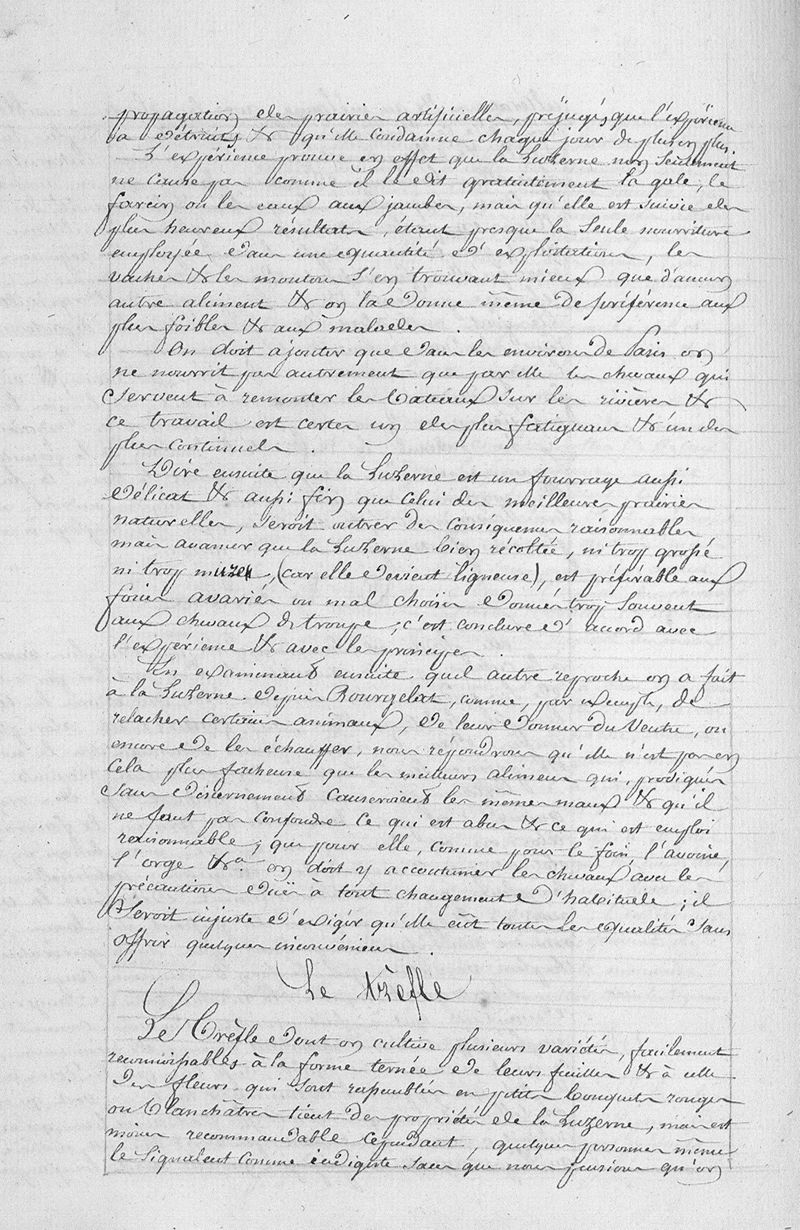 propagation des prairies artificielles, préjugés que l'expérience
a détruits & qu'elle condamne chaque jour de plus en plus.
L'expérience prouve en effet que la Luzerne non seulement
ne cause pas comme il le dit gratuitement la gale, le
farcin ou les eaux aux jambes, mais qu'elle est suivie des
plus heureux résultats, étant presque la seule nourriture
employée dans une quantité d'exploitations, les
vaches & les moutons s'en trouvant mieux que d'aucun
autre aliment & on la donne même de préférence aux
plus foibles & aux malades.
On doit ajouter que dans les environs de Paris on
ne nourrit pas autrement que par elle les chevaux qui
servent à remonter les bateaux sur les rivières &
ce travail est certes un des plus fatiguans & un des
plus continuels.
Dire ensuite que la Luzerne est un fourrage aussi
délicat & aussi fin que celui des meilleures prairies
naturelles, seroit outrer des conséquences raisonnables
mais avancer que la Luzerne bien récoltée, ni trop grosse
ni trop mure, (car elle devient ligneuse), est préférable aux
foins avariés ou mal choisis donnés trop souvent
aux chevaux de troupe, c'est conclure d'accord avec
l'expérience & avec les principes.
En examinant ensuite quel autre reproche on a fait
à la Luzerne depuis Bourgelat, comme, par exemple, de
relacher certains animaux, de leur donner du Ventre, ou
encore de les échauffer, nous répondrons qu'elle n'est pas en
cela plus facheuse que les meilleurs alimens qui, prodigués
sans discernement causeroient les mêmes maux & qu'il
ne faut pas confondre ce qui est abus & ce qui est emploi
raisonnable; que pour elle, comme pour le foin, l'avoine,
l'orge &a on doit y accoutumer les chevaux avec les
précautions dües à tout changement d'habitude; il
seroit injuste d'exiger qu'elle eût toutes les qualités sans
offrir quelques inconvéniens.
Le Trèfle
Le Trèfle dont on cultive plusieurs variétés, facilement
reconnoissables à la forme ternée de leurs feuilles & à celle
des fleurs qui sont rassemblées en petits bouquets rouges
ou blanchâtres tient des propriétés de la Luzerne, mais est
moins recommandable cependant, quelques personnes même
le signalent comme indigeste sans que nous pensions qu'on